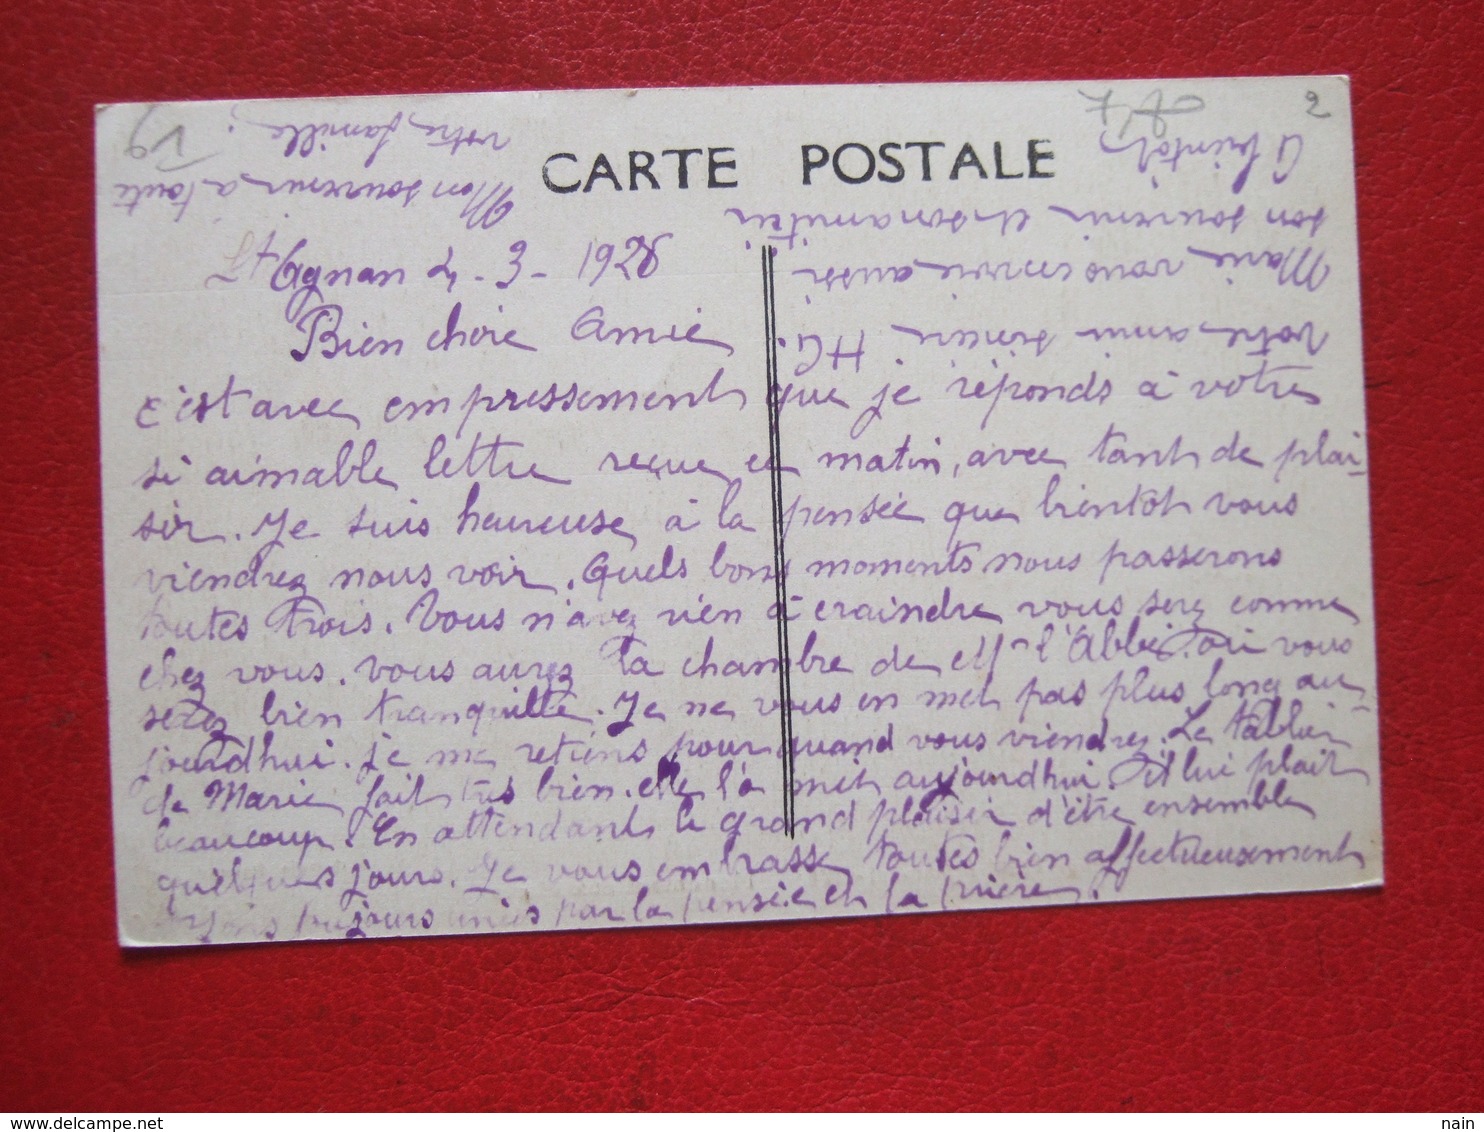 CARTE POSTALE
St Agnan 2-3-1928
Bien chère Amie
c'est avec empressement que je réponds à votre
si aimable lettre reçue ce matin, avec tant de plai-
sir. Je suis heureuse à la pensée que bientôt vous
viendrez nous voir. Quels bons moments nous passerons
toutes trois. Vous n'avez rien à craindre vous serez comme
chez vous. vous aurez la chambre de Mr l'Abbé. où vous
serez bien tranquille. Je ne vous en met pas plus long au-
jourdhui. je me retiens pour quand vous viendrez. Le tablier
de Marie fait très bien. elle l'a mit aujourdhui. il lui plait
beaucoup. En attendant le grand plaisir d'être ensemble
quelques jours. Je vous embrasse toutes bien affectueusement
toujours unies par la pensée et la prière.
votre amie sincère H G.
Marie vous envoie aussi
son souvenir et son amitié
A bientôt
Mon souvenir à toute
votre famille.
2
delcampe.net
nain